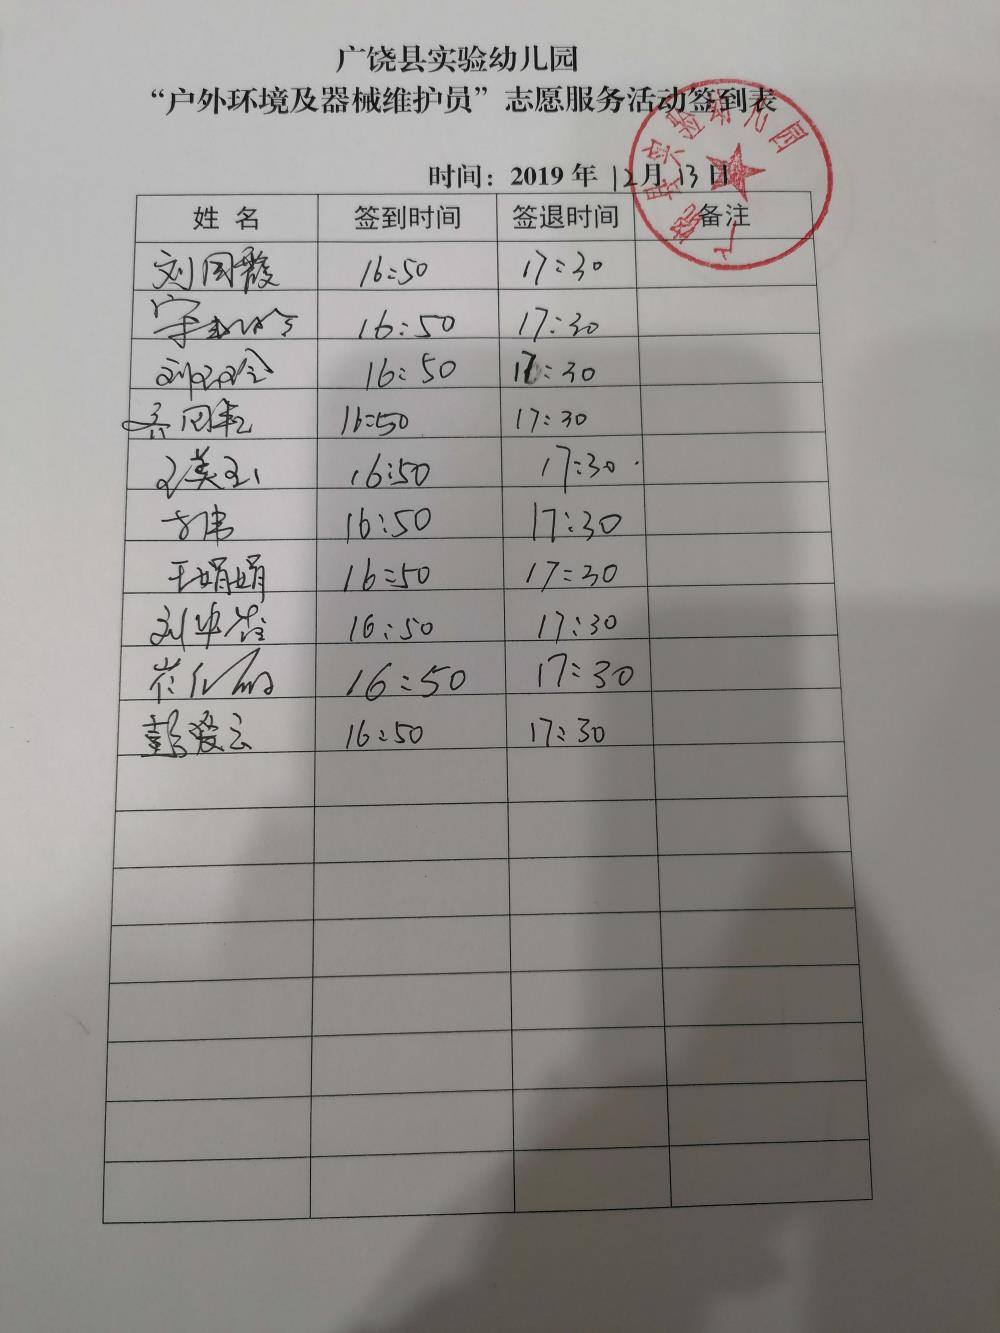 广饶县实验幼儿园
“户外环境及器械维护员”志愿服务活动签到表
广饶县实验幼儿园
时间：2019 年 12月 13日
姓 名 签到时间 签退时间 备注
刘国霞 16:50 17:30
16:50 17:30
刘 16:50 17:30
16:50 17:30
王美玉 16:50 17:30
方伟 16:50 17:30
王娟娟 16:50 17:30
刘华 16:50 17:30
崔 16:50 17:30
彭爱云 16:50 17:30